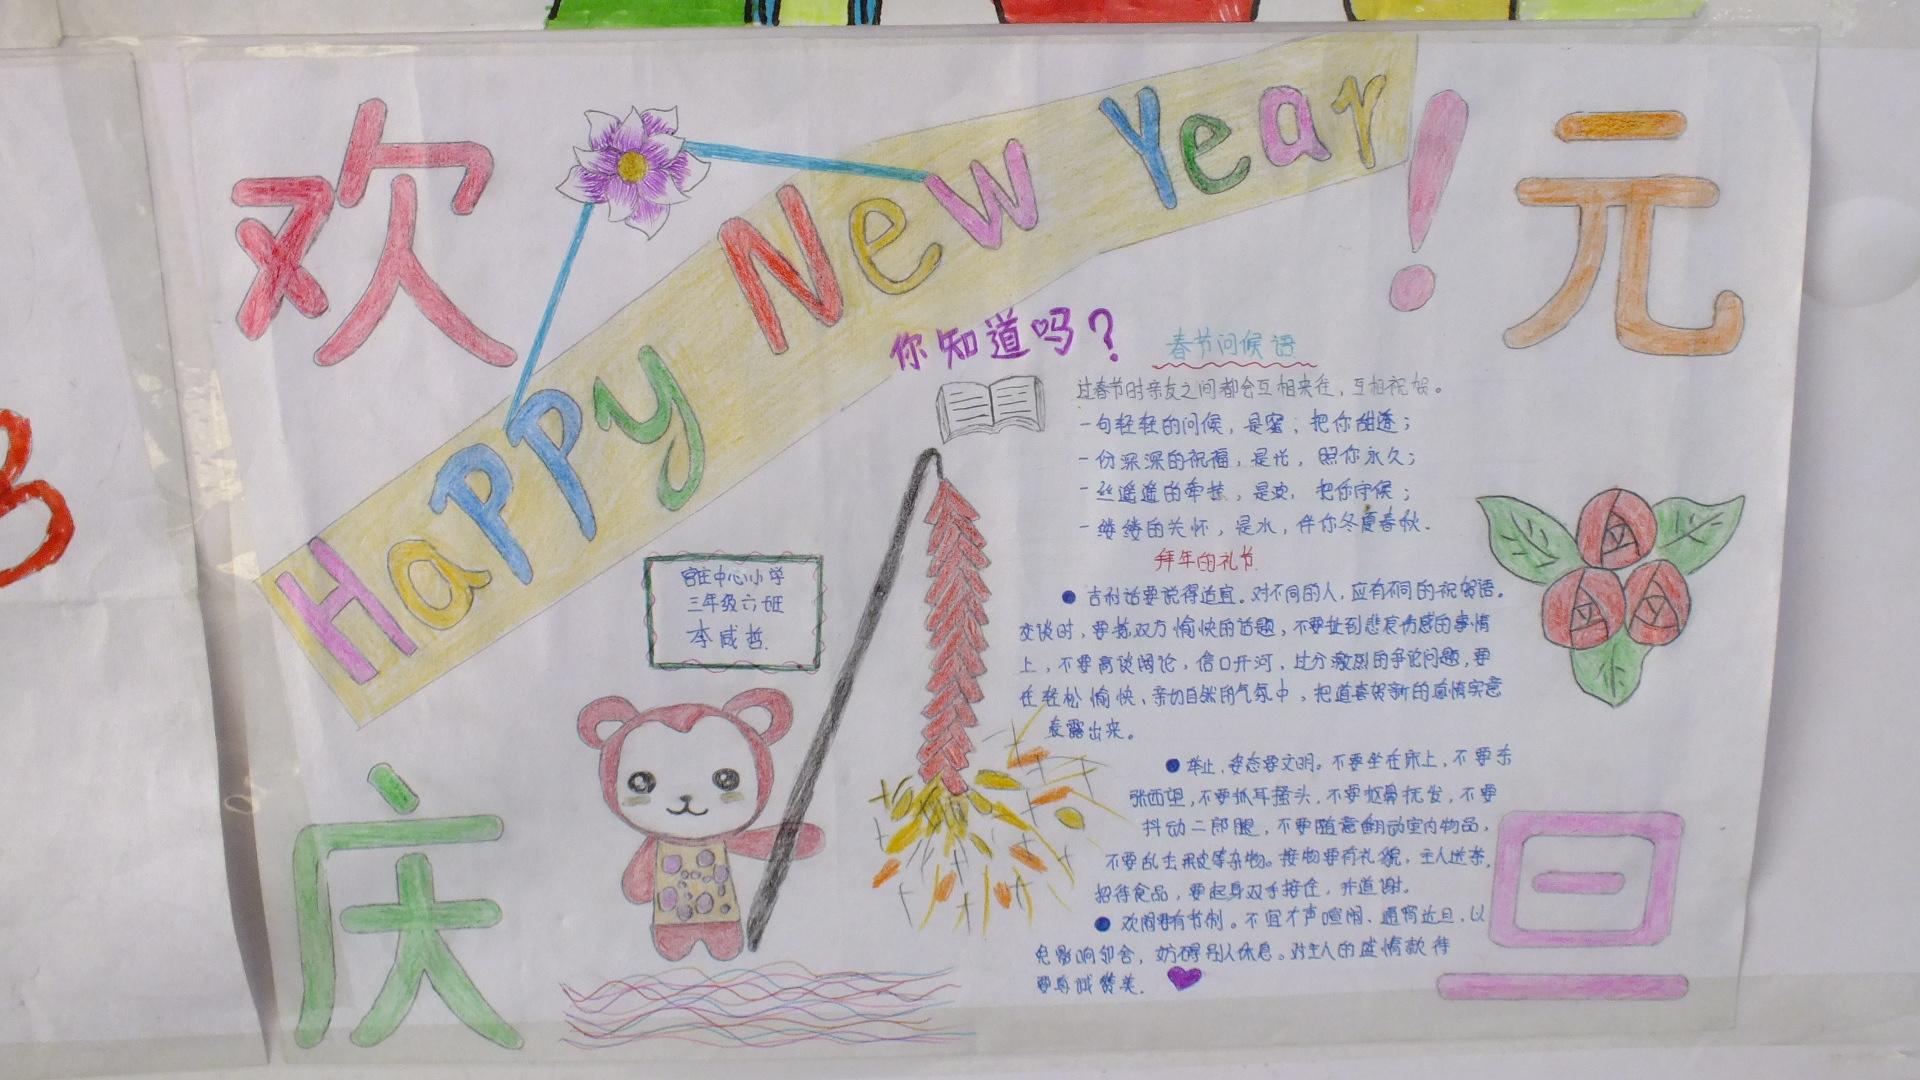 欢
庆
元
旦
Happy New Year!
你知道吗?
春节问候语
过春节时亲友之间都会互相来往，互相祝贺。
一句轻轻的问候，是蜜；把你甜透；
一份深深的祝福，是光，照你永久；
一丝遥遥的牵挂，是浪，把你守候；
一缕缕的关怀，是水，伴你冬夏春秋.
拜年的礼节
吉利话要说得适宜。对不同的人，应有不同的祝贺语。
交谈时，要拣双方愉快的话题，不要扯到悲哀伤感的事情
上，不要高谈阔论，信口开河，过分激烈的争论问题，要
在轻松愉快，亲切自然的气氛中，把道喜贺新的真情实意
表露出来。
举止，姿态要文明。不要坐在床上，不要东
张西望，不要抓耳搔头，不要抠鼻抚发，不要
抖动二郎腿，不要随意翻动室内物品，
不要乱丢果皮等杂物。接物要有礼貌，主人送茶，
招待食品，要起身双手接住，并道谢。
欢闹要有节制。不宜大声喧闹、通宵达旦，以
免影响邻舍，妨碍别人休息。对主人的盛情款待
要真诚赞美.
宫庄中心小学
三年级六班
李咸哲.